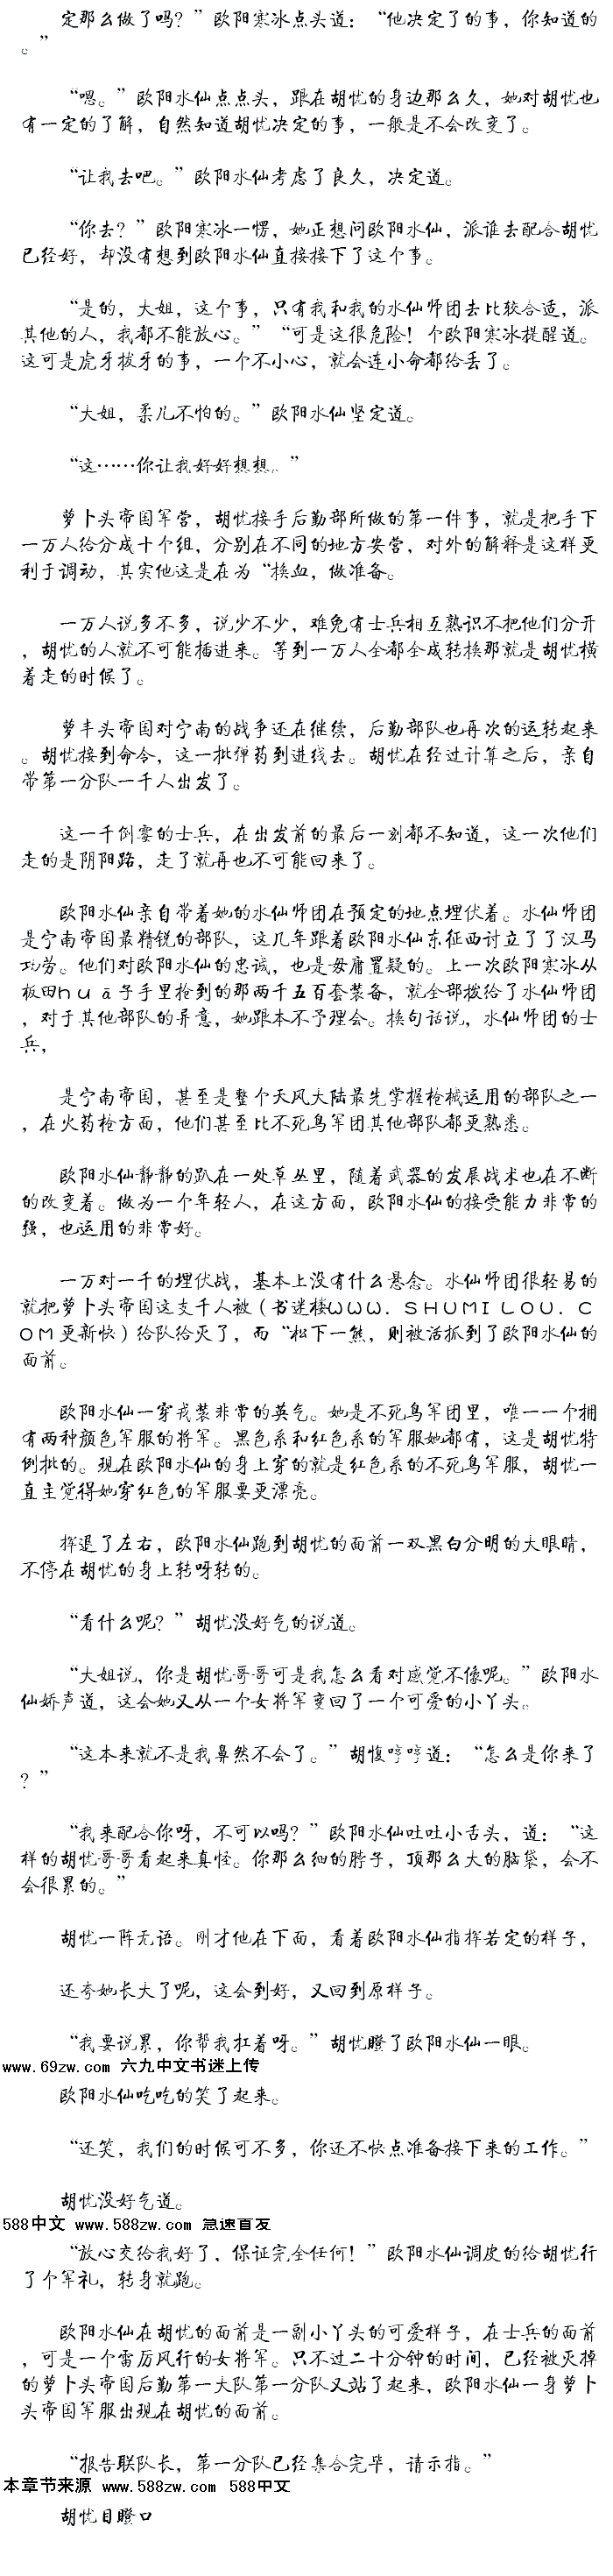 定那么做了吗？”欧阳寒冰点头道：“他决定了的事，你知道的
。”
“嗯。”欧阳水仙点点头，跟在胡忧的身边那么久，她对胡忧也
有一定的了解，自然知道胡忧决定的事，一般是不会改变了。
“让我去吧。”欧阳水仙考虑了良久，决定道。
“你去？”欧阳寒冰一愣，她正想问欧阳水仙，派谁去配合胡忧
已经好，却没有想到欧阳水仙直接接下了这个事。
“是的，大姐，这个事，只有我和我的水仙师团去比较合适，派
其他的人，我都不能放心。”“可是这很危险！个欧阳寒冰提醒道。
这可是虎牙拔牙的事，一个不小心，就会连小命都给丢了。
“大姐，柔儿不怕的。”欧阳水仙坚定道。
“这……你让我好好想想。”
萝卜头帝国军营，胡忧接手后勤部所做的第一件事，就是把手下
一万人给分成十个组，分别在不同的地方安营，对外的解释是这样更
利于调动，其实他这是在为“换血，做准备。
一万人说多不多，说少不少，难免有士兵相互熟识不把他们分开
，胡忧的人就不可能插进来。等到一万人全都全成转换那就是胡忧横
着走的时候了。
萝丰头帝国对宁南的战争还在继续，后勤部队也再次的运转起来
。胡忧接到命令，这一批弹药到进线去。胡忧在经过计算之后，亲自
带第一分队一千人出发了。
这一千倒霉的士兵，在出发前的最后一刻都不知道，这一次他们
走的是阴阳路，走了就再也不可能回来了。
欧阳水仙亲自带着她的水仙师团在预定的地点埋伏着。水仙师团
是宁南帝国最精锐的部队，这几年跟着欧阳水仙东征西讨立了了汉马
功劳。他们对欧阳水仙的忠诚，也是毋庸置疑的。上一次欧阳寒冰从
板田huā子手里抢到的那两千五百套装备，就全部拨给了水仙师团
，对于其他部队的异意，她跟本不予理会。换句话说，水仙师团的士
兵，
是宁南帝国，甚至是整个天风大陆最先掌握枪械运用的部队之一
，在火药枪方面，他们甚至比不死鸟军团其他部队都更熟悉。
欧阳水仙静静的趴在一处草丛里，随着武器的发展战术也在不断
的改变着。做为一个年轻人，在这方面，欧阳水仙的接受能力非常的
强，也运用的非常好。
一万对一千的埋伏战，基本上没有什么悬念。水仙师团很轻易的
就把萝卜头帝国这支千人被（书迷楼WWW．SHUMILOU．C
OM更新快）给队给灭了，而“松下一熊，则被活抓到了欧阳水仙的
面前。
欧阳水仙一穿戎装非常的英气。她是不死鸟军团里，唯一一个拥
有两种颜色军服的将军。黑色系和红色系的军服她都有，这是胡忧特
例批的。现在欧阳水仙的身上穿的就是红色系的不死鸟军服，胡忧一
直主觉得她穿红色的军服要更漂亮。
挥退了左右，欧阳水仙跑到胡忧的面前一双黑白分明的大眼睛，
不停在胡忧的身上转呀转的。
“看什么呢？”胡忧没好气的说道。
“大姐说，你是胡忧哥哥可是我怎么看对感觉不像呢。”欧阳水
仙娇声道，这会她又从一个女将军变回了一个可爱的小丫头。
“这本来就不是我鼻然不会了。”胡愎哼哼道：“怎么是你来了
？”
“我来配合你呀，不可以吗？”欧阳水仙吐吐小舌头，道：“这
样的胡忧哥哥看起来真怪。你那么细的脖子，顶那么大的脑袋，会不
会很累的。”
胡忧一阵无语。刚才他在下面，看着欧阳水仙指挥若定的样子，
还夸她长大了呢，这会到好，又回到原样子。
“我要说累，你帮我扛着呀。”胡忧瞪了欧阳水仙一眼。
www.69zw.com 六九中文书迷上传
欧阳水仙吃吃的笑了起来。
“还笑，我们的时候可不多，你还不快点准备接下来的工作。”
胡忧没好气道。
588中文 www.588zw.com 急速首发
“放心交给我好了，保证完全任何！”欧阳水仙调皮的给胡忧行
了个军礼，转身就跑。
欧阳水仙在胡忧的面前是一副小丫头的可爱样子，在士兵的面前
，可是一个雷厉风行的女将军。只不过二十分钟的时间，已经被灭掉
的萝卜头帝国后勤第一大队第一分队又站了起来，欧阳水仙一身萝卜
头帝国军服出现在胡忧的面前。
“报告联队长，第一分队已经集合完毕，请示指。”
本章节来源 www.588zw.com 588中文
胡忧目瞪口